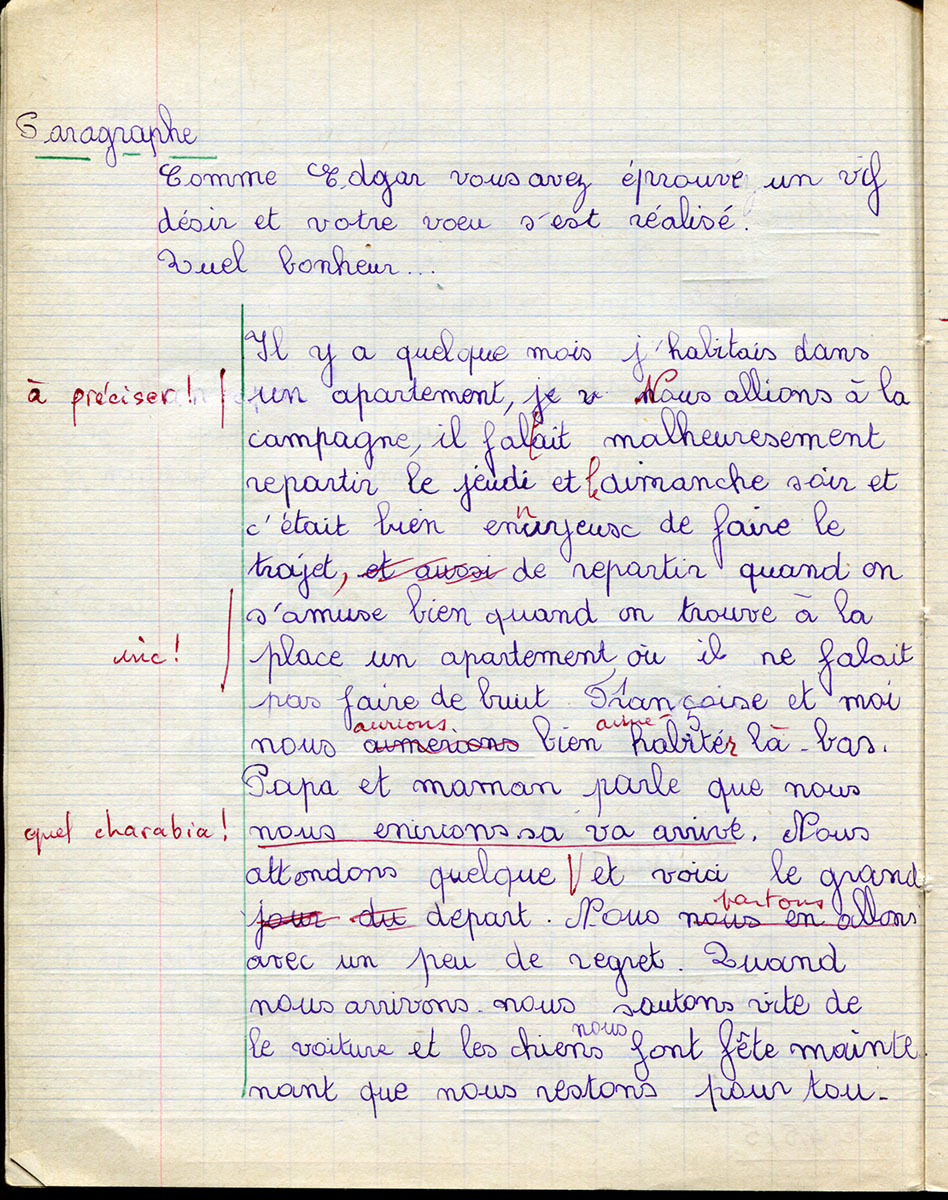 Paragraphe
Comme Edgar vous avez éprouvé un vif
désir et votre voeu s'est réalisé.
Quel bonheur...
Il y a quelque mois j'habitais dans
à préciser ! un apartement, je v Nous allions à la
campagne, il falait malheuresement
repartir le jeudi et le dimanche soir et
c'était bien ennuyeusc de faire le
trajet, et aussi de repartir quand on
s'amuse bien quand on trouve à la
inc ! place un apartement où il ne falait
pas faire de buut. Françoise et moi
aurions aimé
nous aimerions bien habiter là-bas.
Papa et maman parle que nous
quel charabia ! nous enirions sa va arrivé. Nous
attendons quelque et voici le grand
partons
jour du départ. Nous nous en allons
avec un peu de regret. Quand
nous arrivons nous sautons vite de
nous
le voiture et les chiens font fête mainte
nant que nous restons pour tou-